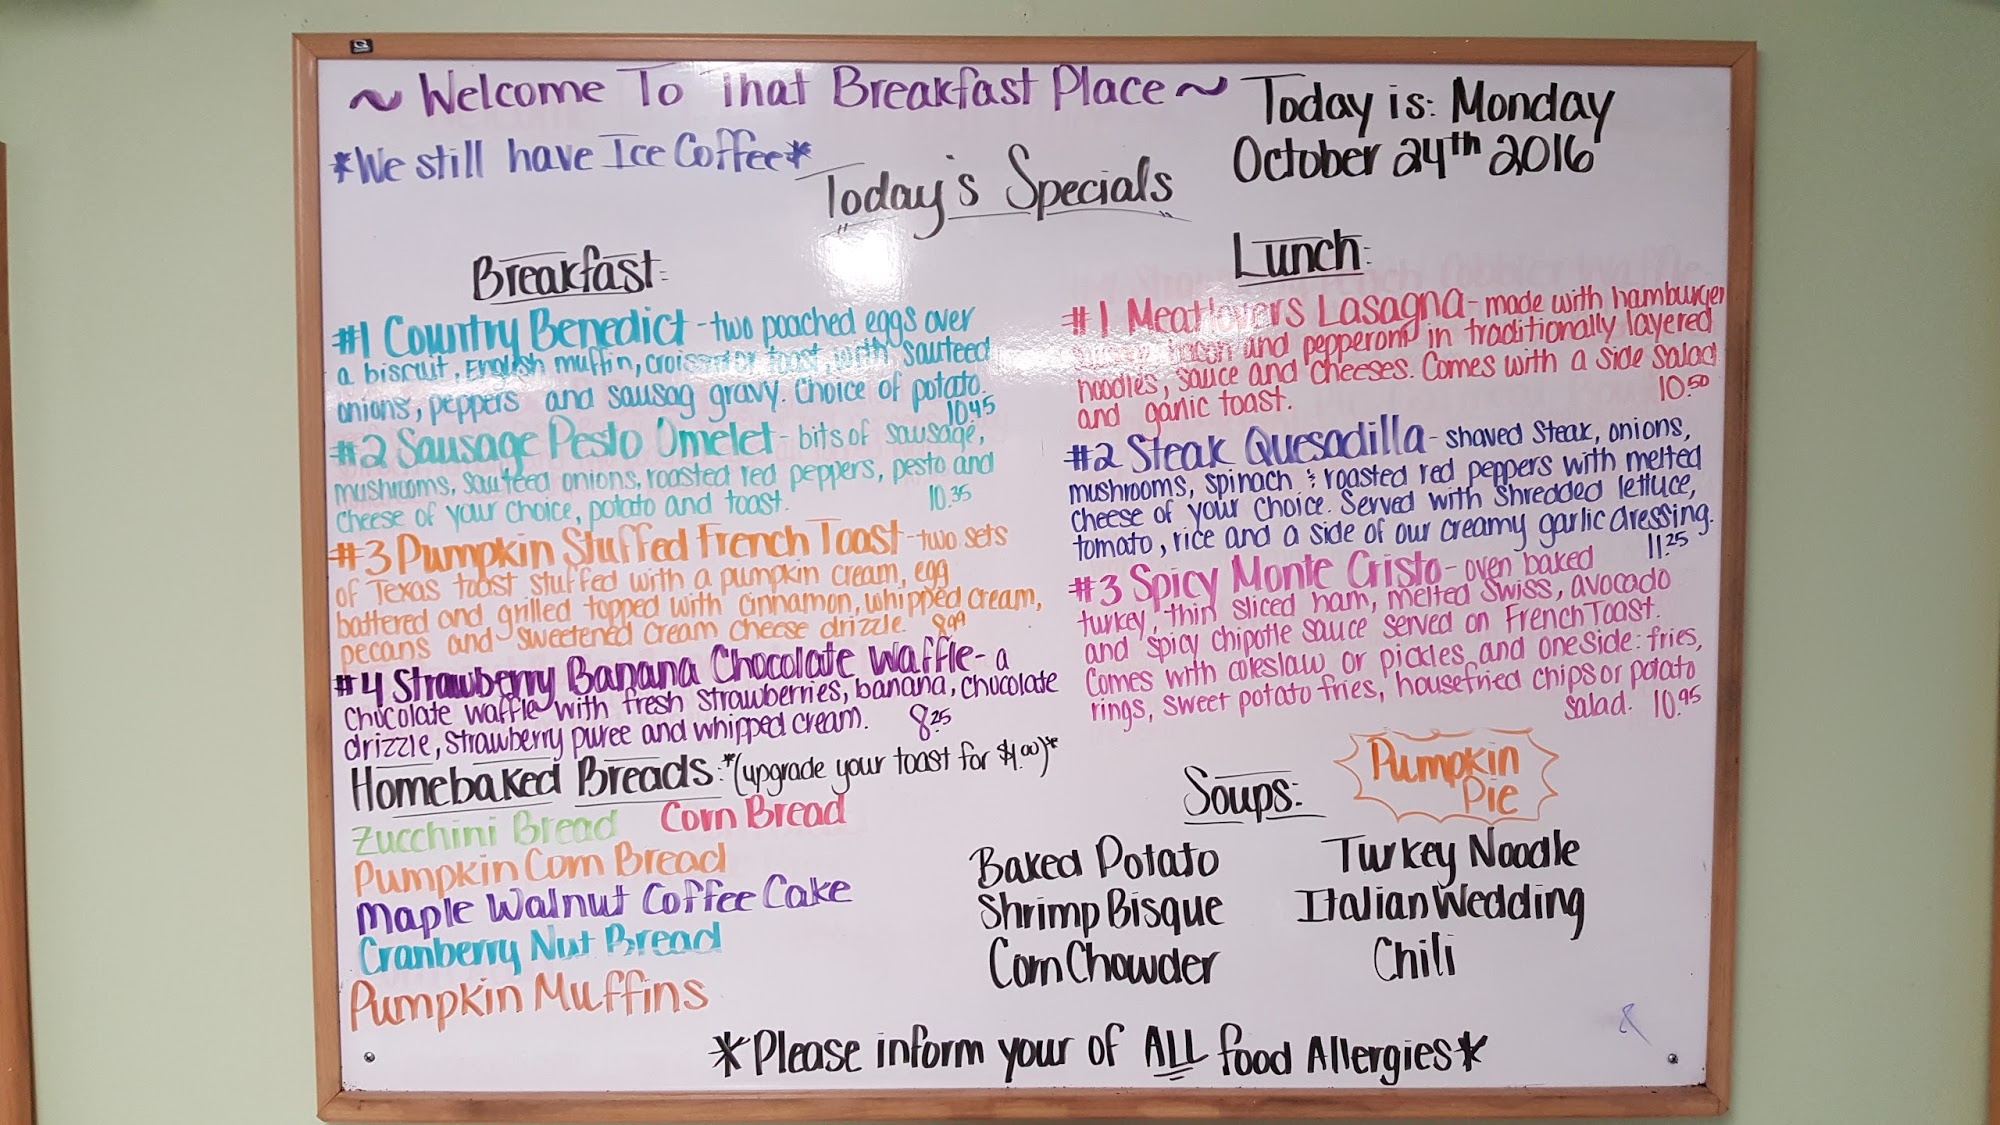 ~ Welcome To That Breakfast Place ~
Today is: Monday
October 24th 2016
*We still have Ice Coffee*
"Today's Specials"
Breakfast:
#1 Country Benedict - two poached eggs over
a biscuit, English muffin, croissant or toast, with sauteed
onions, peppers and sausag gravy. Choice of potato.
10.45
#2 Sausage Pesto Omelet - bits of sausage,
mushrooms, sauteed onions, roasted red peppers, pesto and
cheese of your choice, potato and toast. 10.35
#3 Pumpkin Stuffed French Toast - two sets
of Texas toast stuffed with a pumpkin cream, egg
battered and grilled topped with cinnamon, whipped cream,
pecans and sweetened cream cheese drizzle. 8.99
#4 Strawberry Banana Chocolate Waffle - a
chocolate waffle with fresh strawberries, banana, chocolate
drizzle, strawberry puree and whipped cream. 8.25
Homebaked Breads: *(upgrade your toast for $1.00)*
Zucchini Bread Corn Bread
Pumpkin Corn Bread
Maple Walnut Coffee Cake
Cranberry Nut Bread
Pumpkin Muffins
Lunch:
#1 Meatlovers Lasagna - made with hamburger
bacon and pepperoni in traditionally layered
noodles, sauce and cheeses. Comes with a side salad
and garlic toast. 10.50
#2 Steak Quesadilla - shaved steak, onions,
mushrooms, spinach & roasted red peppers with melted
cheese of your choice. Served with shredded lettuce,
tomato, rice and a side of our creamy garlic dressing.
11.25
#3 Spicy Monte Cristo - oven baked
turkey, thin sliced ham, melted swiss, avocado
and spicy chipotle sauce served on French Toast.
Comes with coleslaw or pickles and one side: fries,
rings, sweet potato fries, housefried chips or potato
salad. 10.95
Pumpkin
Pie
Soups:
Baked Potato Turkey Noodle
Shrimp Bisque Italian Wedding
Corn Chowder Chili
*Please inform your of ALL food Allergies*